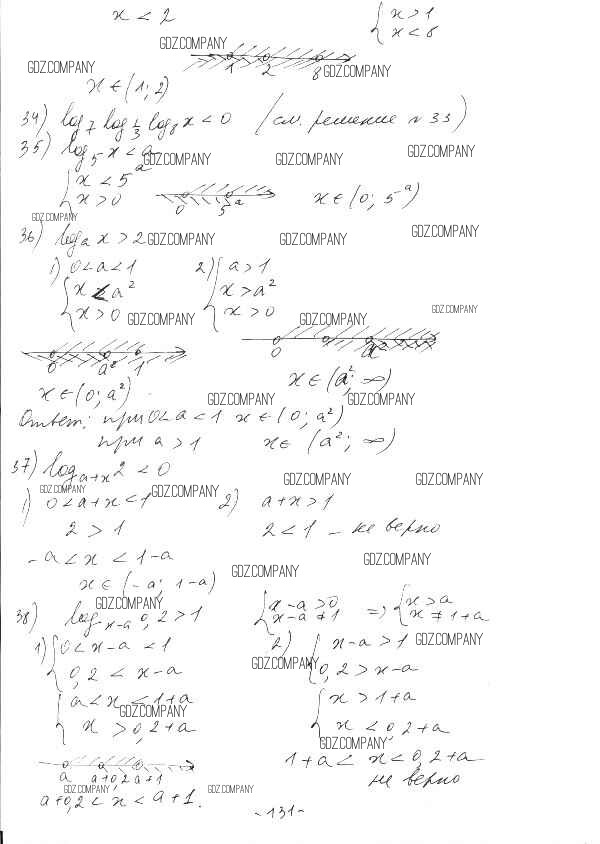 x < 2
{ x > 1
x < 8
GDZ.COMPANY
1 2 8 GDZ.COMPANY
GDZ.COMPANY
x ∈ (1; 2)
34) log₇ log_{1/3} log₈ x < 0 (см. решение n 33)
35) log₅ x < a
GDZ.COMPANY GDZ.COMPANY GDZ.COMPANY
{ x < 5^a
x > 0
0 5^a
x ∈ (0; 5^a)
GDZ.COMPANY
36) log_a x > 2 GDZ.COMPANY GDZ.COMPANY GDZ.COMPANY
1) 0 < a < 1 2) { a > 1
{ x < a² x > a²
x > 0 GDZ.COMPANY x > 0 GDZ.COMPANY GDZ.COMPANY
0 a² 1 0 a²
x ∈ (0; a²) x ∈ (a²; ∞)
GDZ.COMPANY GDZ.COMPANY
Ответ: при 0 < a < 1 x ∈ (0; a²)
при a > 1 x ∈ (a²; ∞)
37) log_{a+x} 2 < 0
GDZ.COMPANY GDZ.COMPANY GDZ.COMPANY GDZ.COMPANY
1) 0 < a + x < 1 2) a + x > 1
2 > 1 2 < 1 – не верно
-a < x < 1 - a GDZ.COMPANY
GDZ.COMPANY
x ∈ (-a; 1-a)
GDZ.COMPANY
38) log_{x-a} 0,2 > 1 { x-a > 0 => { x > a
x-a ≠ 1 x ≠ 1+a
1) { 0 < x-a < 1 2) { x-a > 1 GDZ.COMPANY
0,2 < x-a GDZ.COMPANY 0,2 > x-a
{ a < x < 1+a { x > 1+a
GDZ.COMPANY
x > 0,2+a x < 0,2+a
GDZ.COMPANY
1+a < x < 0,2+a
a a+0,2 a+1 не верно
GDZ.COMPANY GDZ.COMPANY
a+0,2 < x < a+1.
-131-